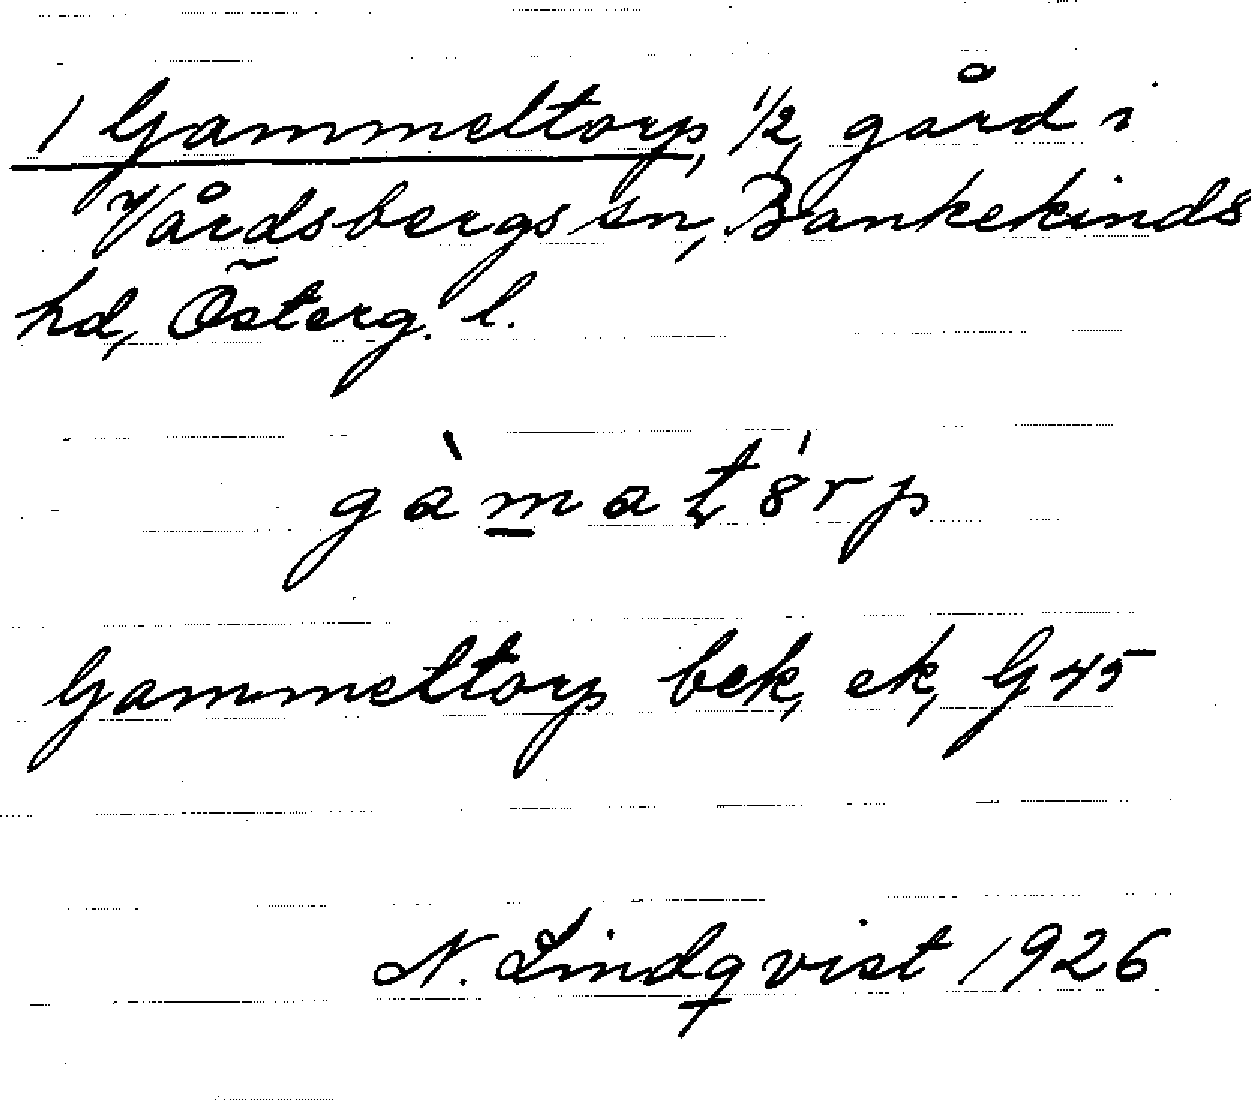 1 Gammeltorp, 1/2 gård i
Vårdsbergs sn, Bankekinds
hd, Österg. l.
gàmaṭ8́rp
Gammeltorp bek, ek, G 45
N. Lindqvist 1926